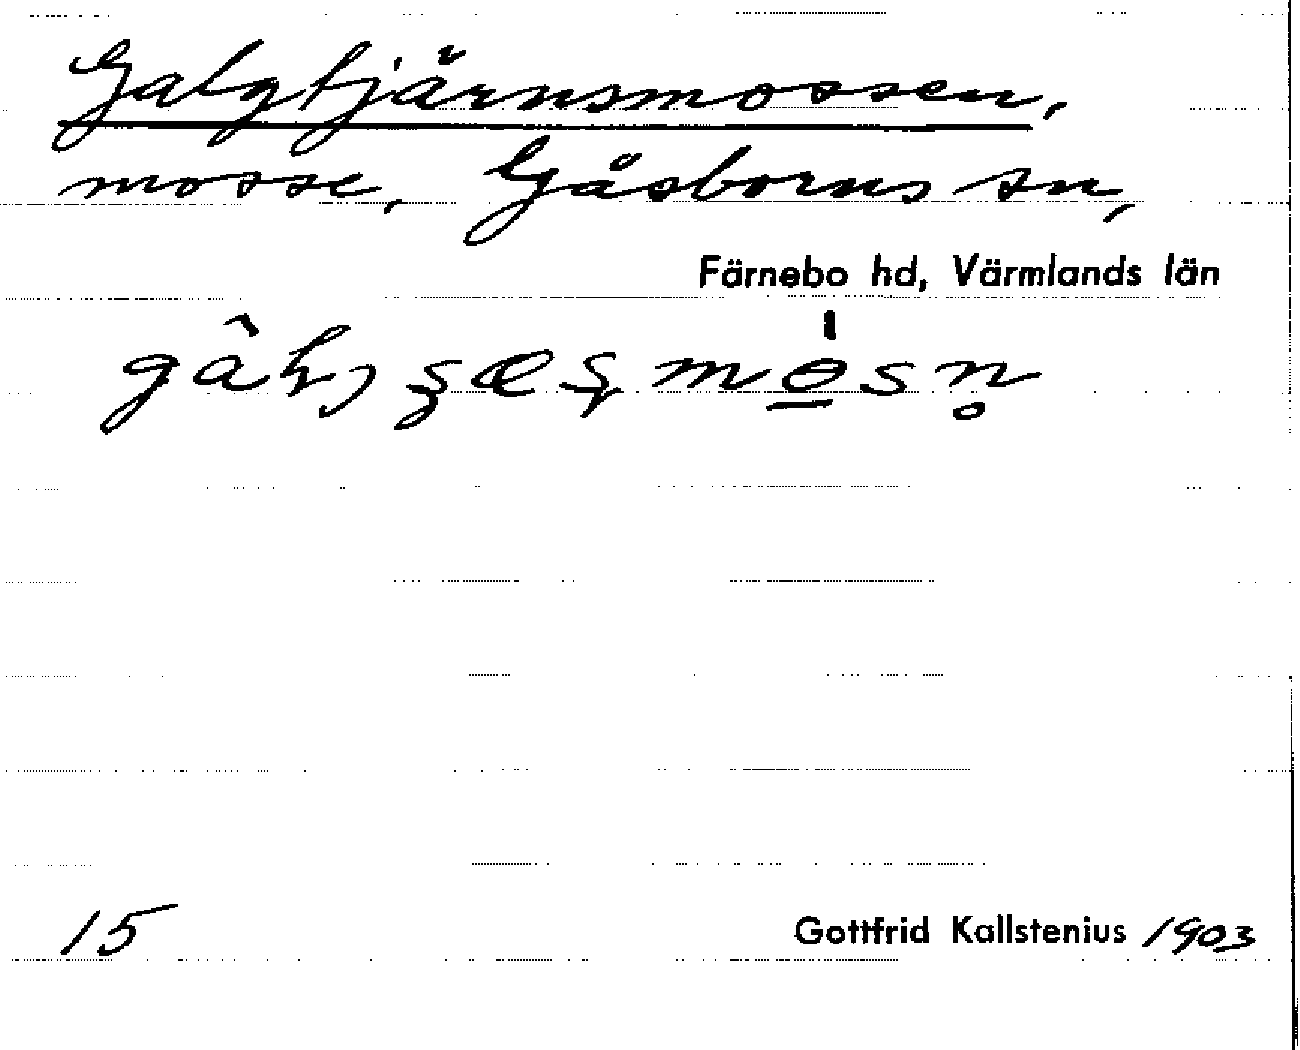 Galgtjärnsmossen,
mosse, Gåsborns sn,
Färnebo hd, Värmlands län
15
Gottfrid Kallstenius 1903